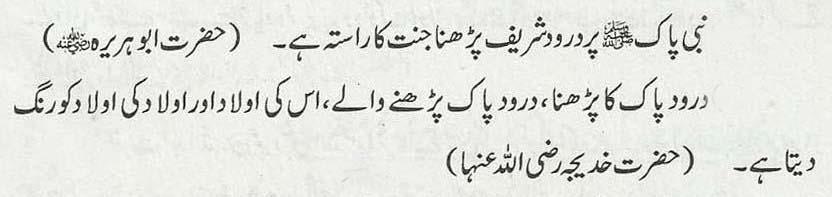 نبی پاک ﷺ پر درود شریف پڑھنا جنت کا راستہ ہے۔ (حضرت ابو ہریرہ رضی اللہ عنہ)
درود پاک کا پڑھنا، درود پاک پڑھنے والے، اس کی اولاد اور اولاد کی اولاد کو رنگ
دیتا ہے۔ (حضرت خدیجہ رضی اللہ عنہا)